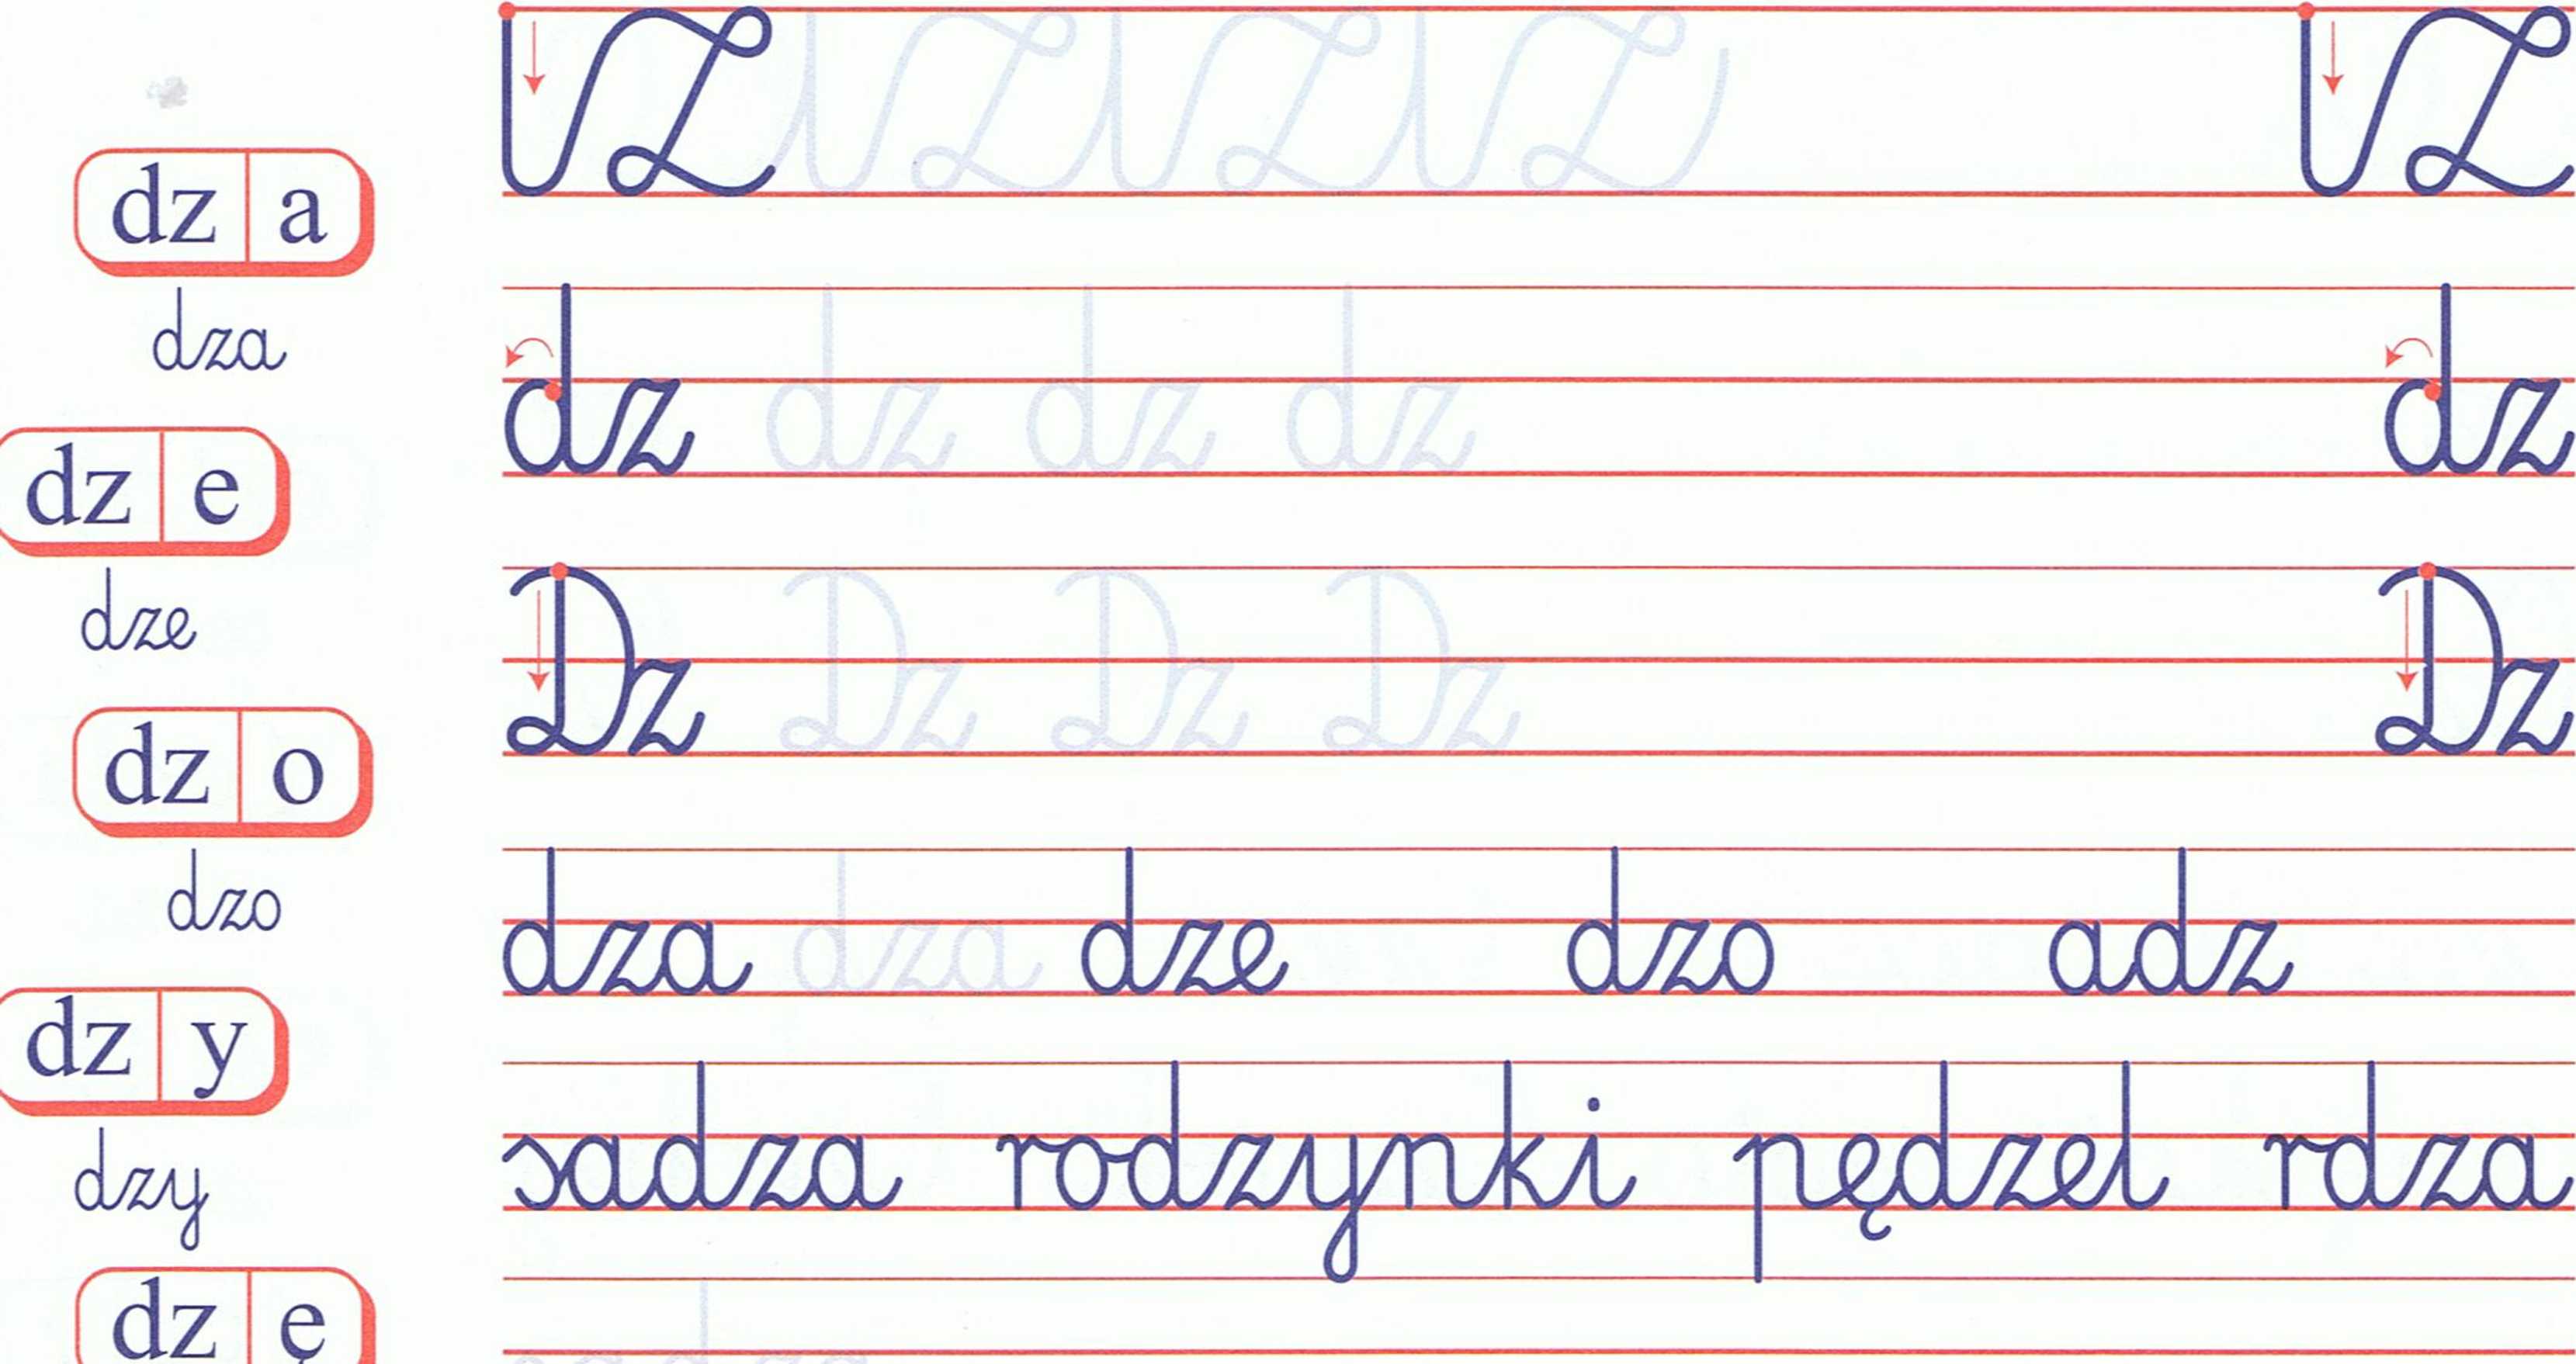 dz a
dza
dz e
dze
dz o
dzo
dz y
dzy
dz ę
dz dz dz dz dz
Dz Dz Dz Dz Dz
dza dza dze dzo adz
sadza rodzynki pędzel rdza